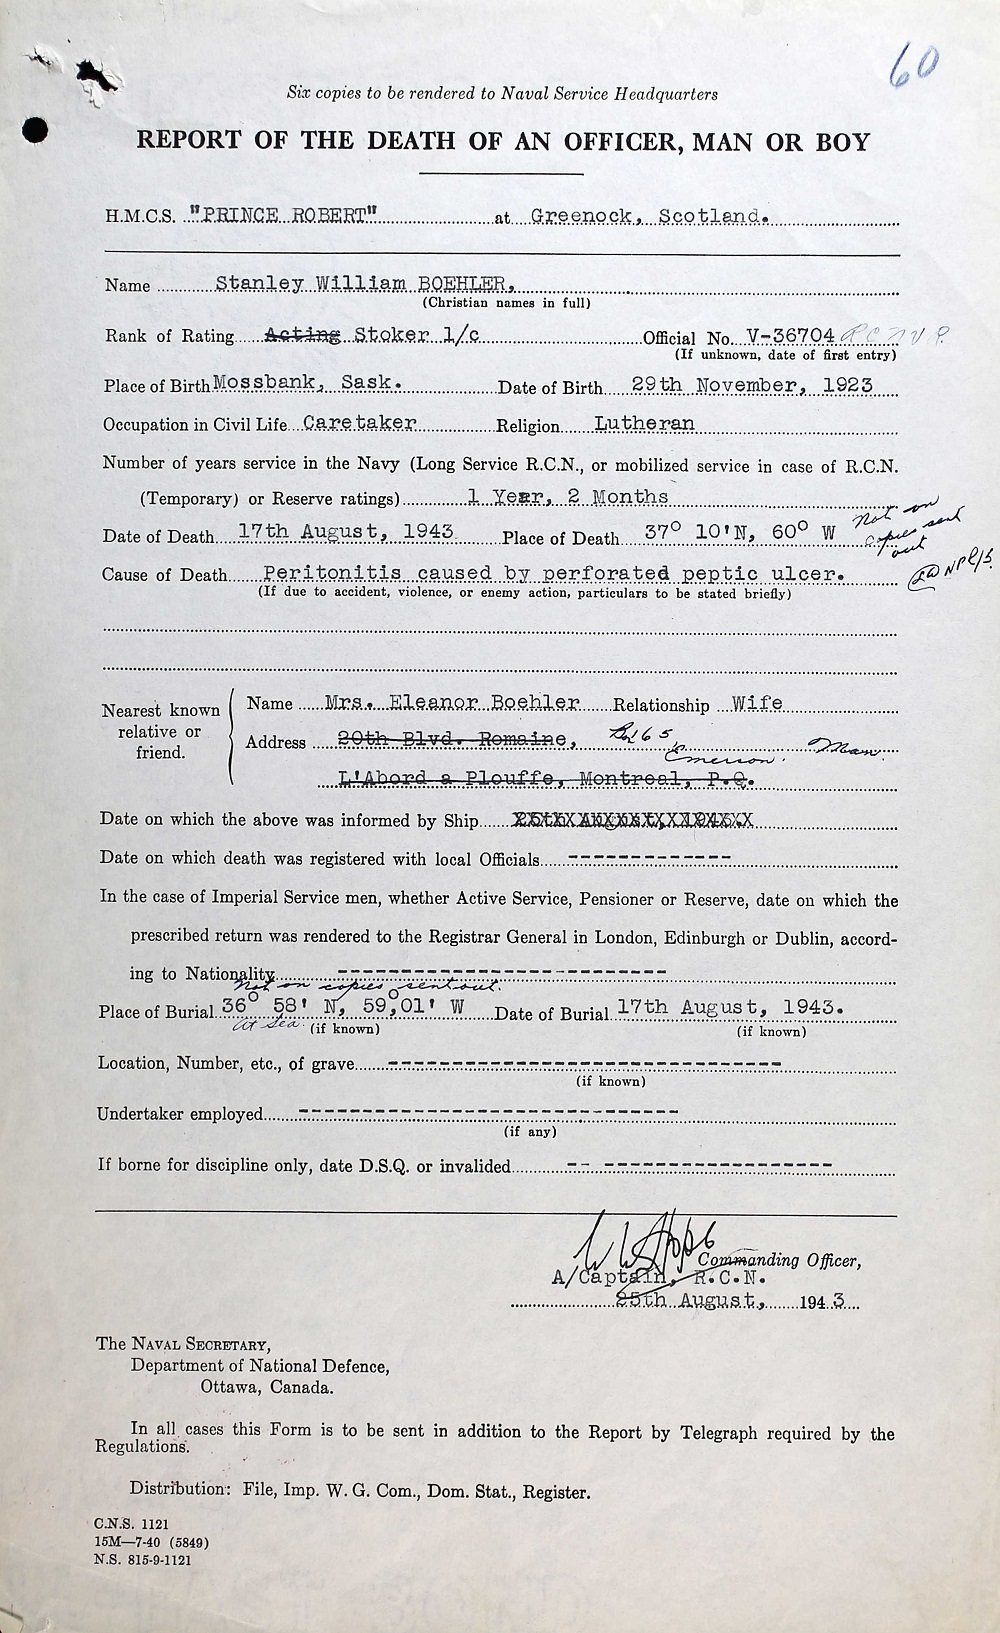 60
Six copies to be rendered to Naval Service Headquarters
REPORT OF THE DEATH OF AN OFFICER, MAN OR BOY
H.M.C.S. "PRINCE ROBERT" at Greenock, Scotland.
Name Stanley William BOEHLER.
(Christian names in full)
Rank of Rating Acting Stoker 1/c Official No. V-36704 R.C.N.V.R.
(If unknown, date of first entry)
Place of Birth Mossbank, Sask. Date of Birth 29th November, 1923
Occupation in Civil Life Caretaker Religion Lutheran
Number of years service in the Navy (Long Service R.C.N., or mobilized service in case of R.C.N.
(Temporary) or Reserve ratings) 1 Year, 2 Months
Date of Death 17th August, 1943 Place of Death 37° 10'N, 60° W Not on copies sent out
Cause of Death Peritonitis caused by perforated peptic ulcer.
(If due to accident, violence, or enemy action, particulars to be stated briefly)
Nearest known relative or friend.
Name Mrs. Eleanor Boehler Relationship Wife
Address 20th Blvd. Romaine, Box 65 Emerson. Man.
L'Abord a Plouffe, Montreal, P.Q.
Date on which the above was informed by Ship
Date on which death was registered with local Officials -------------
In the case of Imperial Service men, whether Active Service, Pensioner or Reserve, date on which the
prescribed return was rendered to the Registrar General in London, Edinburgh or Dublin, accord-
ing to Nationality --------------------------
Not on copies sent out.
Place of Burial 36° 58' N, 59°01' W Date of Burial 17th August, 1943.
At Sea (if known) (if known)
Location, Number, etc., of grave --------------------------------
(if known)
Undertaker employed --------------------------------
(if any)
If borne for discipline only, date D.S.Q. or invalided -- ------------------
Commanding Officer,
A/Captain, R.C.N.
25th August, 1943
The Naval Secretary,
Department of National Defence,
Ottawa, Canada.
In all cases this Form is to be sent in addition to the Report by Telegraph required by the
Regulations.
Distribution: File, Imp. W. G. Com., Dom. Stat., Register.
C.N.S. 1121
15M—7-40 (5849)
N.S. 815-9-1121